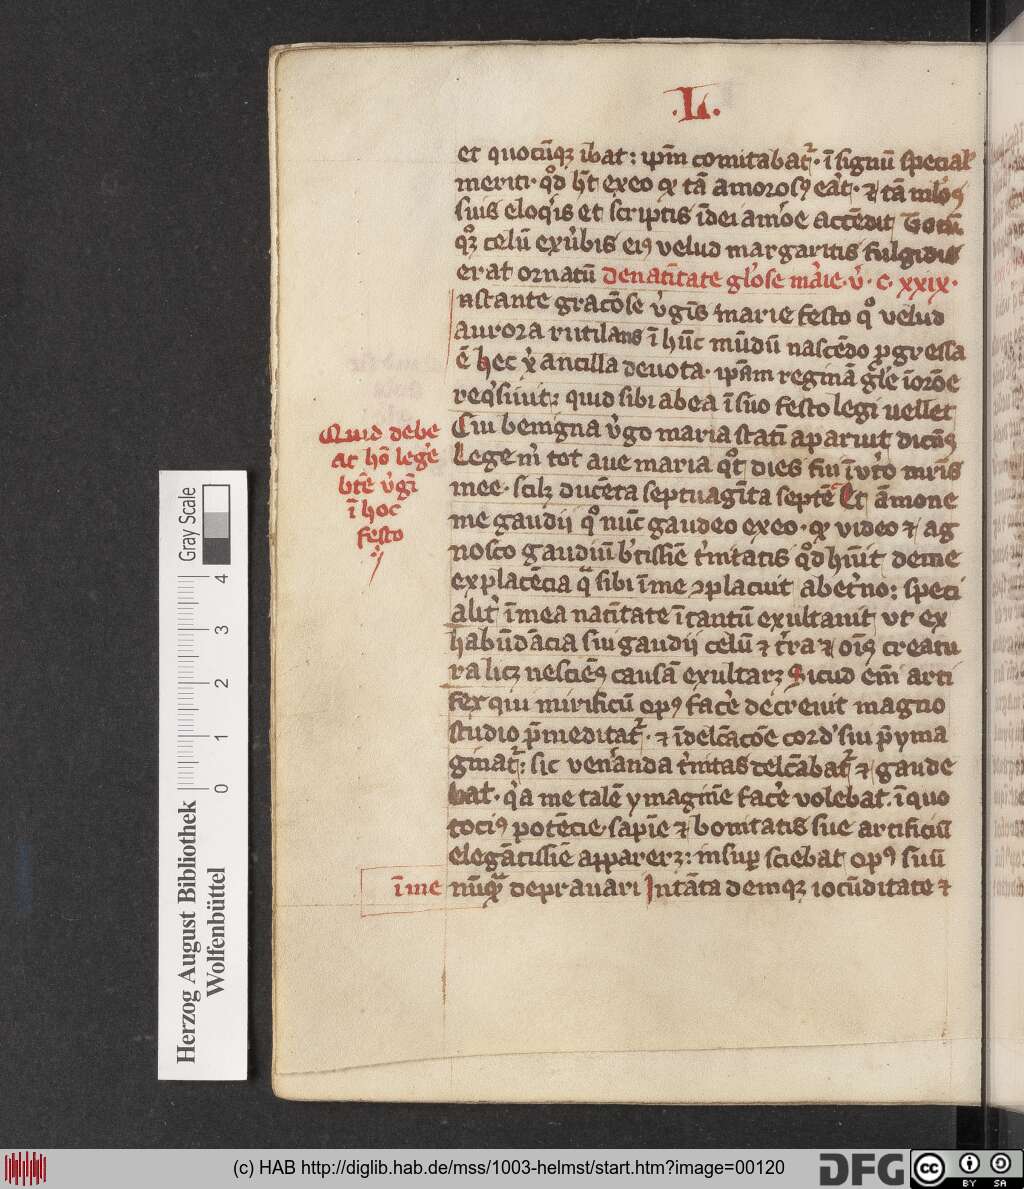 .L.
et quocūqꝫ ibat : ip̄m comitabat᷑ · ī signū special᷑
meriti · qd̓ hꝫt exeo qꝛ tā amorosꝰ eāt · ⁊ tā
suis eloqͥs et scriptis ī dei amōe accēdit
qꝫ celū ex v̓bis eiꝰ velud margaritis fulgidis
erat ornatū de natīitate glͦose mͣie · v̓ · c · xxix ·
nstante gracōse v̓gīs marie festo qͦ velud
aurora rutilans ī hūc mūdū nascēdo ꝓgressa
ē hec xͥ ancilla deuota · ip̄am reginā gl̄e ī orōe
reqͥsiuit : quid sibi ab ea ī suo festo legi uellet
Cui benigna v̓go maria statī aparuit dicēs
Lege mͥ tot aue maria qͦt dies fui ī vt̓o mr̄is
mee · scilꝫ ducēta septuagīta septē Et āmone
me gaudii qͦ nūc gaudeo exeo · qꝛ video ⁊ ag
nosco gaudiū bt̄issīe tͥnitatis qd̓ hūit de me
ex placēcia qͣ sibi ī me ꝯplacuit ab et̓no : speci
alit᷑ ī mea natīitate ī tantū exultauit vt ex
habūdācia sui gaudii celū ⁊ tr̓ra ⁊ oīs creatu
ra licꝫ nesciēs causā exultarꝫ Sicud em̄ arti
fex qui mirificū opꝰ facͤe decreuit magno
studio p̄meditat᷑ · ⁊ ī delc̄acōe cordꝭ sui p̄ yma
ginat᷑ : sic veneͣnda tͥnitas delc̄abat᷑ ⁊ gaude
bat · qͥa me talē ymaginē facͤe volebat · ī quo
tociꝰ potēcie sapīe ⁊ bonitatis sue artificiū
elegātissīe apparerꝫ : insuꝑ sciebat opꝰ suū
ī me nūqͣꝫ deprauari Jn tāta demqꝫ iocūditate ⁊
Quid debe
at hō legͤe
bt̄e v̓gī
ī hoc
festo
Gray Scale
0 1 2 3 4
Herzog August Bibliothek
Wolfenbüttel
(c) HAB http://diglib.hab.de/mss/1003-helmst/start.htm?image=00120
DFG
cc BY SA